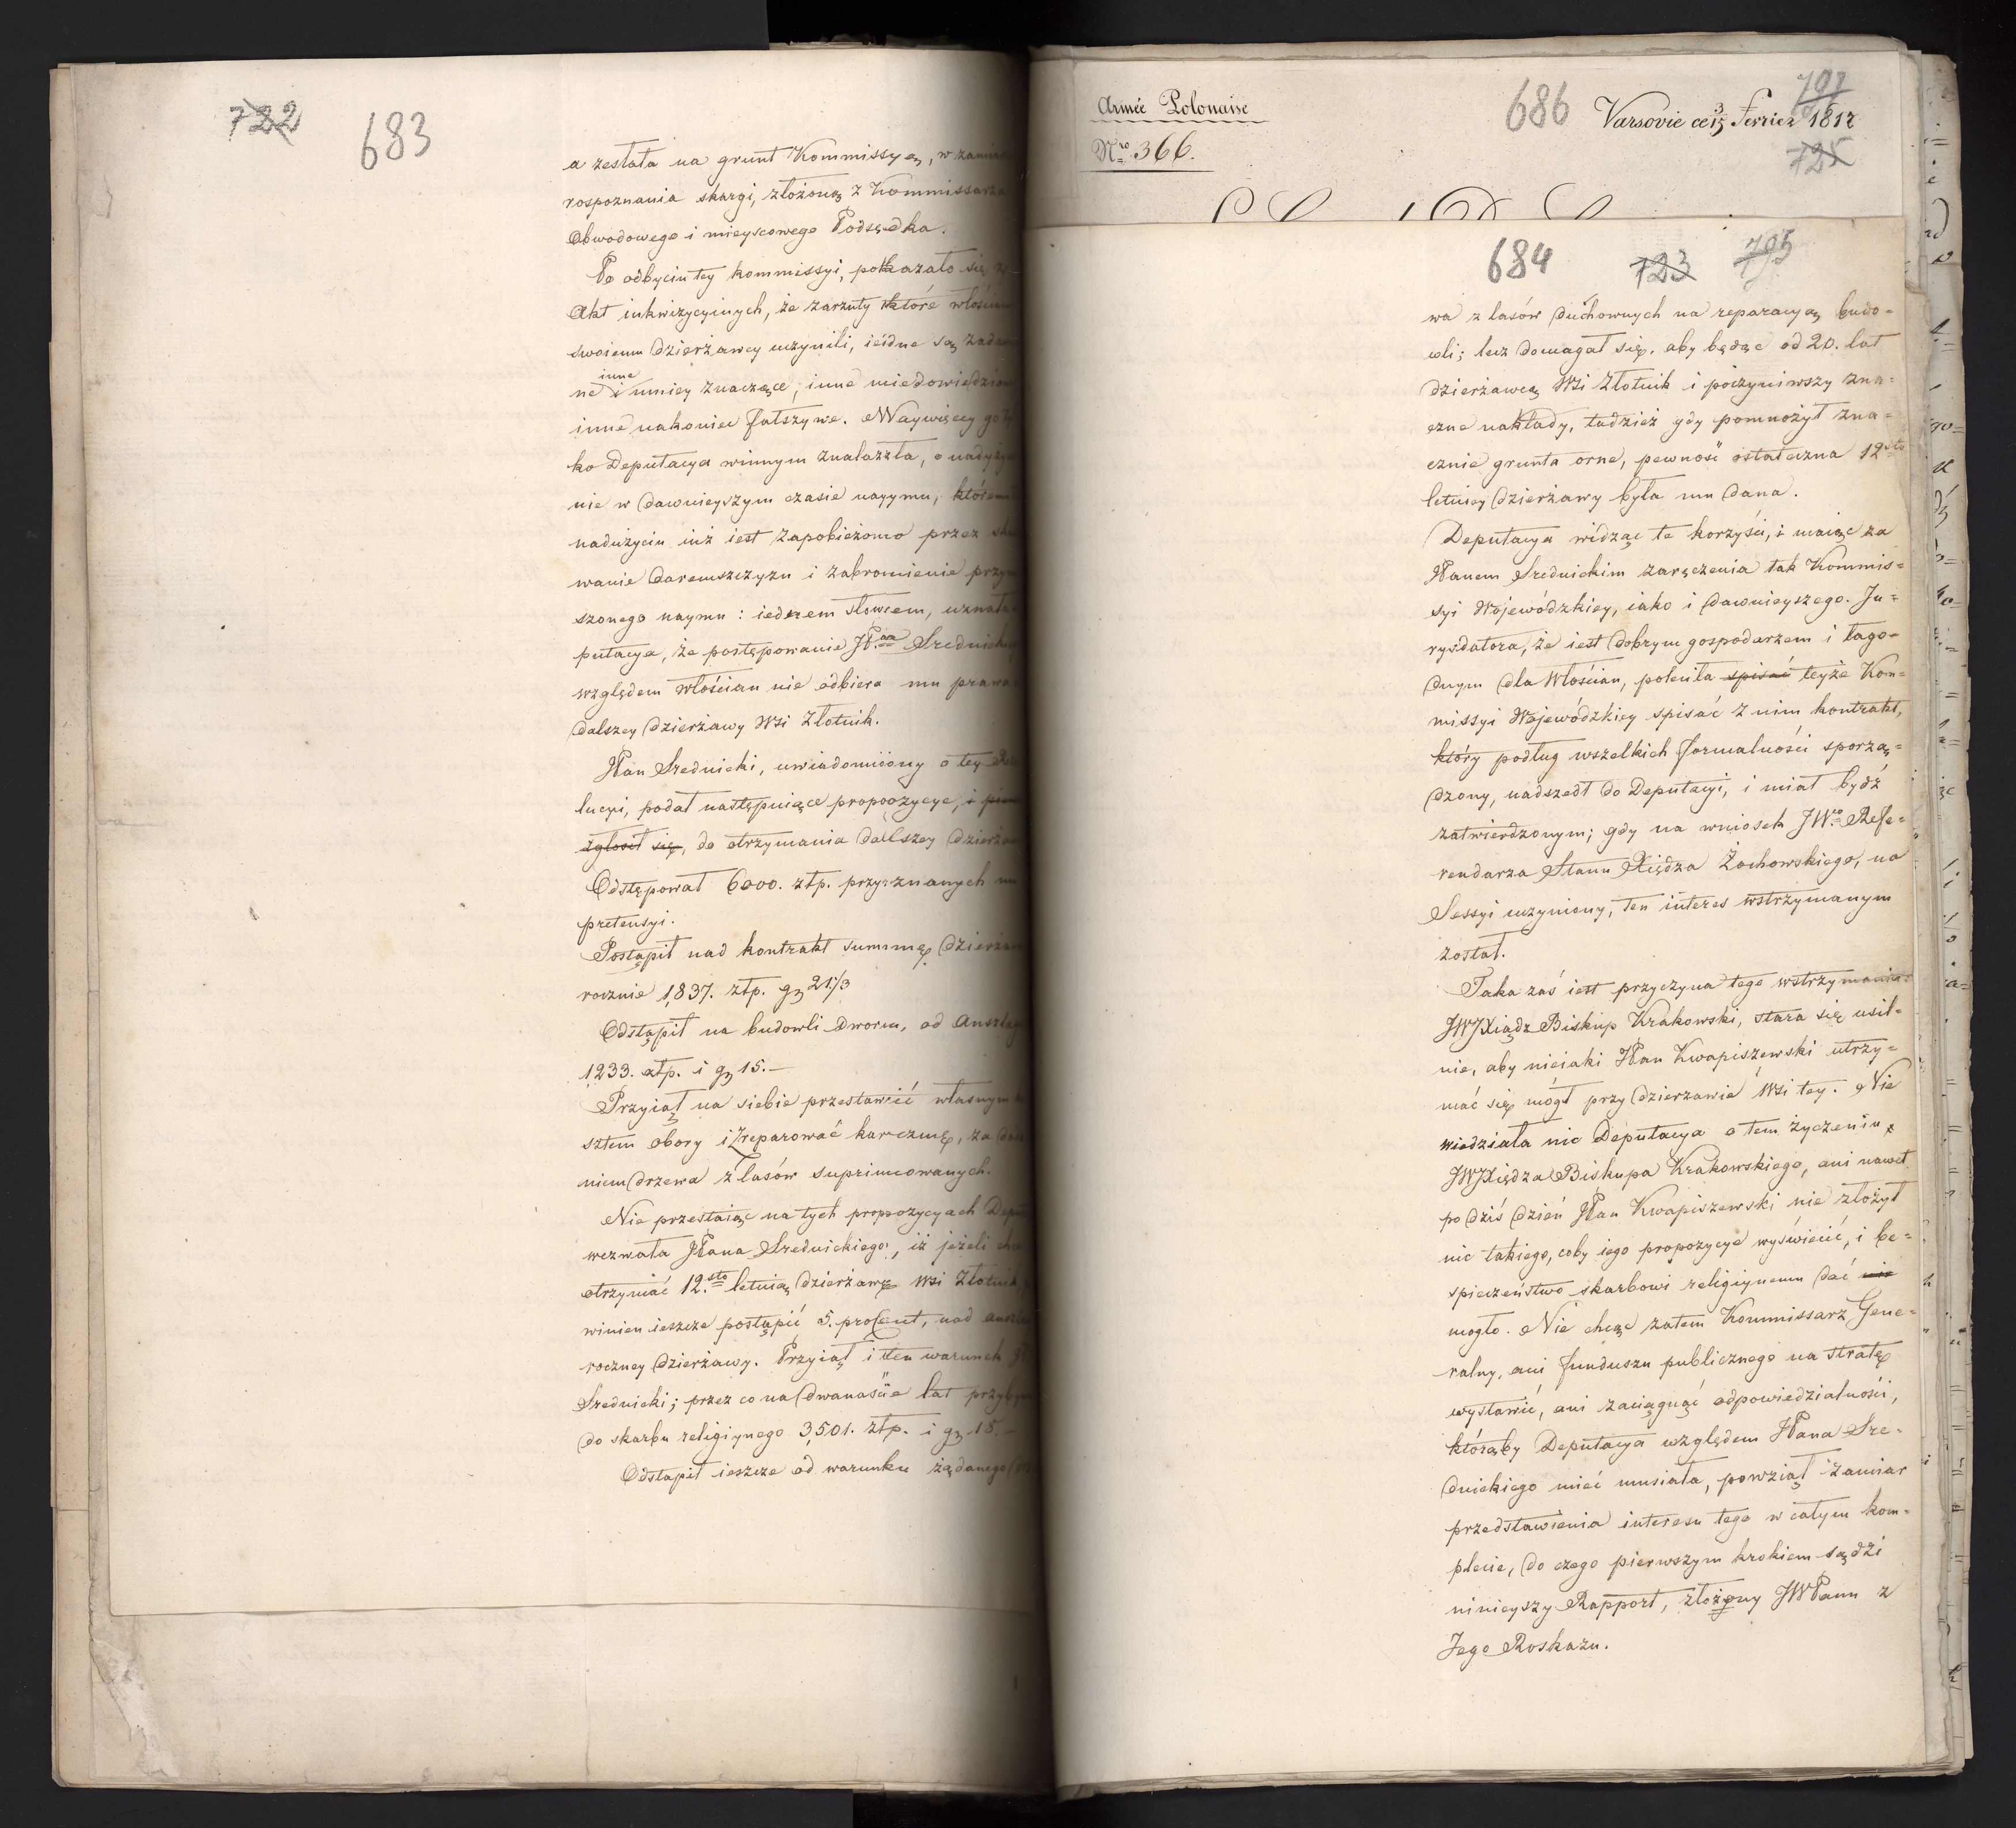 722
683
a zesłała na grunt Kommissyą, w
rospoznania skargi, złożoną z Kommissarza
Obwodowego i mieyscowego Podsędka.
Po odbyciu tey kommissyi, pokazało się
Akt inkwizycyinych, że zarzuty które
swoiemu Dzierżawcy uczynili, iedne są
ne i inne mniey znaczące; inne niedowiedzione
inne nakoniec fałszywe. Naywięcey go
ko Deputacya winnym znalazła, o
nie w dawnieyszym czasie naymu,
nadużyciu iuż iest zapobieżono przez
wanie daremszczyzn i zabronienie
szonego naymu: iednem słowem, uznała
putacya, że postępowanie JPana Srednickiego
względem włościan nie odbiera mu prawa
dalszey dzierżawy Wsi Złotnik.
JPan Srednicki, uwiadomiony o tey
lucyi, podał następuiące propozycye, i
zgłosił się, do otrzymania dalszey
Odstępował 6000. złp. przyznanych
pretensyi.
Postąpił nad kontrakt summę
rocznie 1,837. złp. gr 21 1/3
Odstąpił na budowli Dworu, od
1,233. złp. i gr 15.—
Przyiął na siebie przestawić własnym
sztem obory i zreparować karczmę, za
niem drzewa z lasów supprimowanych.
Nie przestaiąc na tych propozycyach
wezwała JPana Srednickiego, iż jeżeli chce
otrzymać 12.sto letnią dzierżawę Wsi Złotnik,
winien ieszcze postąpić 5. procent, nad
roczney dzierżawy. Przyiął i ten warunek
Srednicki; przez co na dwanaście lat
do skarbu religiynego 3,501. złp. i gr 15.—
Odstąpił ieszcze od warunku żądanego
Armée Polonaise
Nro 366.
686
Varsovie ce 13 Fevrier 1817
725
684
723
795
wa z lasów duchownych na reparacyą budo=
wli; lecz domagał się, aby będąc od 20. lat
dzierżawcą Wsi Złotnik i poczyniwszy zna=
czne nakłady, tudzież gdy pomnożył zna=
cznie grunta orne, pewność ostateczna 12sto
letniey dzierżawy była mu dana.
Deputacya widząc te korzyści, i maiąc za
JPanem Srednickim zaręczenia tak Kommis=
syi Wojewódzkiey, iako i dawnieyszego Ju=
rysdatora, że iest dobrym gospodarzem i łago=
dnym dla Włościan, poleciła spisać teyże Kom=
missyi Wojewódzkiey spisać z nim kontrakt,
który podług wszelkich formalności sporzą=
dzony, nadszedł do Deputacyi, i miał bydź
zatwierdzonym; gdy na wniosek JWgo Refe=
rendarza Stanu Xiędza Żochowskiego, na
Sessyi uczyniony, ten interes wstrzymanym
został.
Taka zaś iest przyczyna tego wstrzymania:
JWJXiądz Biskup Krakowski, stara się usil=
nie, aby nieiaki JPan Kwapiszewski utrzy=
mać się mógł przy dzierzawie Wsi tey. Nie
wiedziała nic Deputacya o tem życzeniu
JWJXiędza Biskupa Krakowskiego, ani nawet
po dziś dzień JPan Kwapiszewski nie złożył
nic takiego, coby iego propozycye wyświecić, i be=
spieczeństwo skarbowi religiynemu dać nie
mogło. Nie chcąc zatem Kommissarz Gene=
ralny, ani funduszu publicznego na stratę
wystawić, ani zaciągnąć odpowiedzialności,
którąby Deputacya względem JPana Sre=
dnickiego mieć musiała, powziął zamiar
przedstawienia interesu tego w całym kom=
plecie, do czego pierwszym krokiem sądzi
ninieyszy Rapport, złożony JWPanu z
Jego Roskazu.